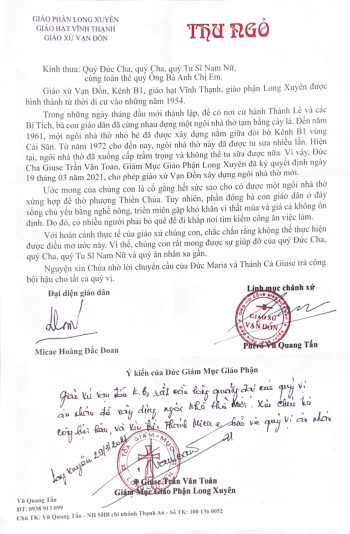 GIÁO PHẬN LONG XUYÊN
GIÁO HẠT VĨNH THẠNH
GIÁO XỨ VẠN ĐỒN
THƯ NGỎ
Kính thưa: Quý Đức Cha, quý Cha, quý Tu Sĩ Nam Nữ,
cùng toàn thể quý Ông Bà Anh Chị Em.
Giáo xứ Vạn Đồn, Kênh B1, giáo hạt Vĩnh Thạnh, giáo phận Long Xuyên được
hình thành từ thời di cư vào những năm 1954.
Trong những ngày tháng đầu mới thành lập, để có nơi cử hành Thánh Lễ và các
Bí Tích, bà con giáo dân đã cùng nhau dựng một ngôi nhà thờ tạm bằng cây lá. Đến năm
1961, một ngôi nhà thờ nhỏ bé đã được xây dựng nằm giữa đôi bờ Kênh B1 vùng
Cái Sắn. Từ năm 1972 cho đến nay, ngôi nhà thờ này đã được tu sửa nhiều lần. Hiện
tại, ngôi nhà thờ đã xuống cấp trầm trọng và không thể tu sửa được nữa. Vì vậy, Đức
Cha Giuse Trần Văn Toản, Giám Mục Giáo Phận Long Xuyên đã ký quyết định ngày
19 tháng 03 năm 2021, cho phép giáo xứ Vạn Đồn xây dựng ngôi nhà thờ mới.
Ước mong của chúng con là cố gắng hết sức sao cho có được một ngôi nhà thờ
xứng hợp để thờ phượng Thiên Chúa. Tuy nhiên, phần đông bà con giáo dân ở đây
sống chủ yếu bằng nghề nông, triền miên gặp khó khăn vì thất mùa và giá cả không ổn
định. Do đó, có nhiều người phải bỏ quê để đi khắp nơi tìm kiếm công ăn việc làm.
Với hoàn cảnh thực tế của giáo xứ chúng con, chắc chắn rằng không thể thực hiện
được điều mơ ước này. Vì thế, chúng con rất mong được sự giúp đỡ của quý Đức Cha,
quý Cha, quý Tu Sĩ Nam Nữ và quý ân nhân xa gần.
Nguyện xin Chúa nhờ lời chuyển cầu của Đức Maria và Thánh Cả Giuse trả công
bội hậu cho tất cả quý vị.
Đại diện giáo dân
Linh mục chánh xứ
GIÁO XỨ
VẠN ĐỒN
Micae Hoàng Đắc Đoan
Phêrô Vũ Quang Tấn
Ý kiến của Đức Giám Mục Giáo Phận
Giáo xứ Vạn Đồn K.B1 rất cần lòng quảng đại của quý vị
ân nhân để xây dựng ngôi Nhà thờ mới. Xin Chúa trả
công bội hậu, và
quý vị ân nhân
Long Xuyên 29/3/2021
TÒA GIÁM MỤC
Giuse Trần Văn Toản
Giám Mục Giáo Phận Long Xuyên
Vũ Quang Tấn
ĐT: 0938 913 099
Chủ TK: Vũ Quang Tấn - NH SHB chi nhánh Thạnh An - Số TK: 100 136 0052